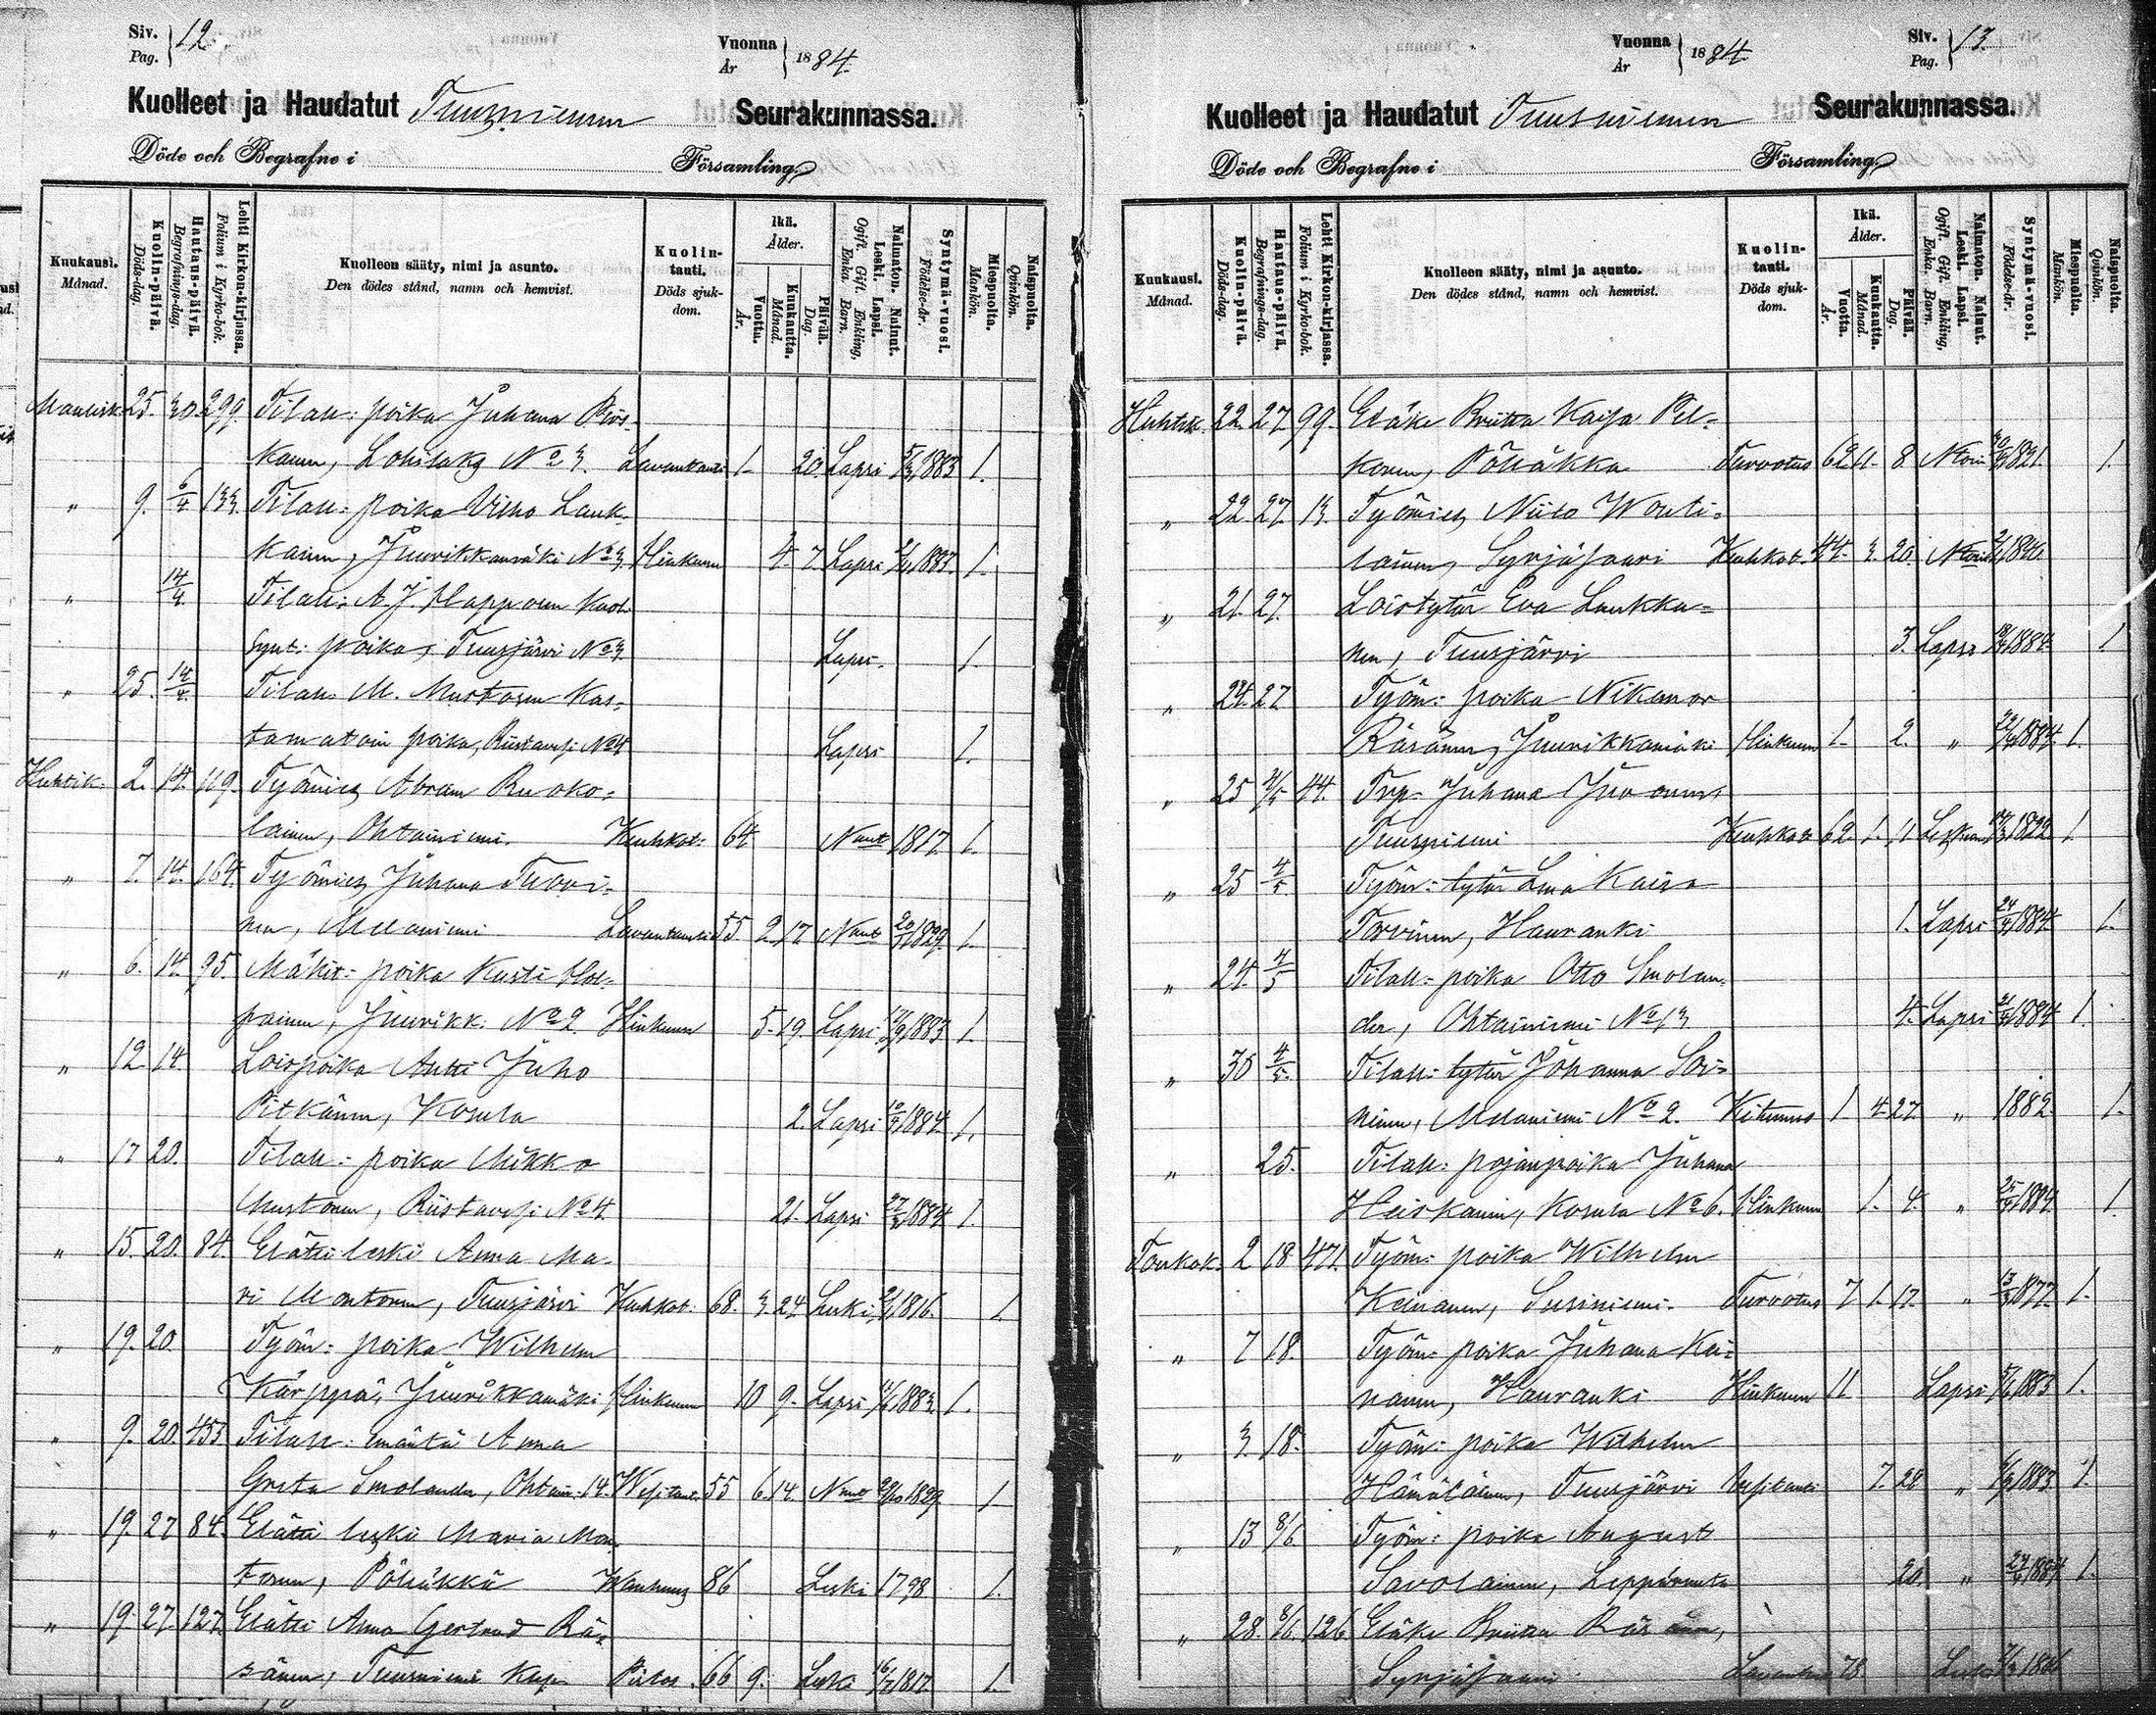 Siv. Pag. 12.
Vuonna År 1884.
Kuolleet ja Haudatut Tuusniemen Seurakunnassa.
Döde och Begrafne i Församling.
Kuukausi. Månad.
Kuolin-päivä. Döds-dag.
Hautaus-päivä. Begrafnings-dag.
Lehti Kirkon-kirjassa. Folium i Kyrko-bok.
Kuolleen sääty, nimi ja asunto. Den dödes stånd, namn och hemvist.
Kuolin-tauti. Döds sjuk-dom.
Ikä. Ålder.
Vuotta. År.
Kuukautta. Månad.
Päivää. Dag.
Naimaton. Nainut. Leski. Lapsi. Ogift. Gift. Enkling, Enka. Barn.
Syntymä-vuosi. Födelse-år.
Miespuolta. Mankön.
Naispuolta. Qvinkön.
25. 30. 299. Tilall: poika Juhana
No 3. 1 20. Lapsi 1883 1.
" 9. 6/4 133. Tilall: poika Vilho Lauk-
kainen, Juurikkamäki No 3. Hinkuun 4. 7. Lapsi 1883. 1.
" 14/4. Tilall: A. J. Happosen Kuol.
synt: poika, Tuusjärvi No 3. Lapsi. 1.
" 25. 14/4. Tilall. M. Mustosen Kas-
tamatoin poika, Riistavesi No 4 Lapsi 1.
Huhtik. 2. 14. 119. Työmies Abram Ruoko-
lainen, Ohtaniemi. Keuhkot: 64 Naut 1817. 1.
" 7. 14. 164. Työmies Juhana Tuovi-
nen, Melaniemi 55. 2. 17 Naut 1829. 1.
" 6. 14. 95. Mäkit: poika Kusti Hol-
painen, Juurikk: No 2. Hinkuun 5. 19. Lapsi 1883 1.
" 12 14. Loispoika Antti Juho
Pitkänen, Kosula 2. Lapsi 10/4 1884. 1.
" 17 20. Tilall: poika Mikko
Mustonen, Riistavesi No 4. 21. Lapsi 27/3 1884 1.
" 15. 20. 84. Elätti leski Anna Ma-
ri Montonen, Tuusjärvi Keuhkot: 68. 3 24 Leski 1816. 1.
" 19. 20. Työm: poika Wilhelm
Kärppä, Juurikkamäki Hinkuun 10 9. Lapsi 1883. 1.
" 9. 20. 455 Tilall: emäntä Anna
Greta Smolander, Ohtain. 14. 55 6. 14. Naut 1829. 1
" 19. 27. 84. Elätti leski Maria Mon-
tonen, Pölläkkä Wanhuus 86 Leski 1798. 1.
" 19. 27. 127. Elätti Anna Gertrud Rä-
sänen, Tuusniemi 66 9. Leski 16/7 1817 1.
Siv. Pag. 13.
Vuonna År 1884.
Kuolleet ja Haudatut Tuusniemen Seurakunnassa.
Döde och Begrafne i Församling.
Kuukausi. Månad.
Kuolin-päivä. Döds-dag.
Hautaus-päivä. Begrafnings-dag.
Lehti Kirkon-kirjassa. Folium i Kyrko-bok.
Kuolleen sääty, nimi ja asunto. Den dödes stånd, namn och hemvist.
Kuolin-tauti. Döds sjuk-dom.
Ikä. Ålder.
Vuotta. År.
Kuukautta. Månad.
Päivää. Dag.
Naimaton. Nainut. Leski. Lapsi. Ogift. Gift. Enkling, Enka. Barn.
Syntymä-vuosi. Födelse-år.
Miespuolta. Mankön.
Naispuolta. Qvinkön.
Huhtik. 22. 27. 99. Eläke Briitta Kaisa Pel-
konen, Pölläkkä Turvotus 62. 11. 8 Ntoin 1821. 1.
" 22 27. 13. Työmies Niilo Wouti-
lainen, Syrjäsaari Keuhkot. 44. 3. 20. Ntoin 1840.
" 21. 27. Loistytär Eva Laukka-
nen, Tuusjärvi 3. Lapsi 18/4 1884. 1
" 24. 27 Työm: poika Nikanor
Räsänen, Juurikkamäki Hinkuun 1. 2. " 22/2 1884. 1.
" 25 4/5 44. Juhana Juvonen
Tuusniemi Keuhkot 62. 1. 11 Leskim 14/3 1822 1.
" 25 4/5 Työm: tytär Kaisa
Torvinen, Hauranki 1. Lapsi 24/4 1884. 1.
" 24. 4/5 Tilall: poika Otto Smolan-
der, Ohtainiemi No 13 4. Lapsi 1884 1.
" 30 4/5. Tilall: tytär Johanna Soi-
ninen, Melaniemi No 2. Kitumus 1 4. 27. " 1882. 1.
" 25. Tilall: pojanpoika Juhana
Heiskanen, Kosula No 6. Hinkuun 1. 4. " 1884. 1.
Toukok. 2 18. 471. Työm: poika Wilhelm
Keinanen, Susiniemi. Turvotus 7 1. 17. " 15/3 1877. 1.
" 7 18. Työm: poika Juhana Kei-
nanen, Hauranki Hinkuun 11 Lapsi 1883 1.
" 3 18. Työm: poika Wilhelm
Hämäläinen, Tuusjärvi 7. 28 " 1883. 1.
" 13 8/6 Työm: poika August
Savolainen, Lepparanta 20. " 1884 1.
" 28. 8/6. 126 Eläke Briitta Räsänen,
Syrjäsaari 78.